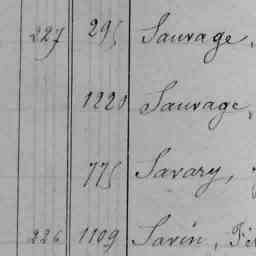 227 295 Sauvage,
1220 Sauvage,
775 Savary,
226 1109 Savin,